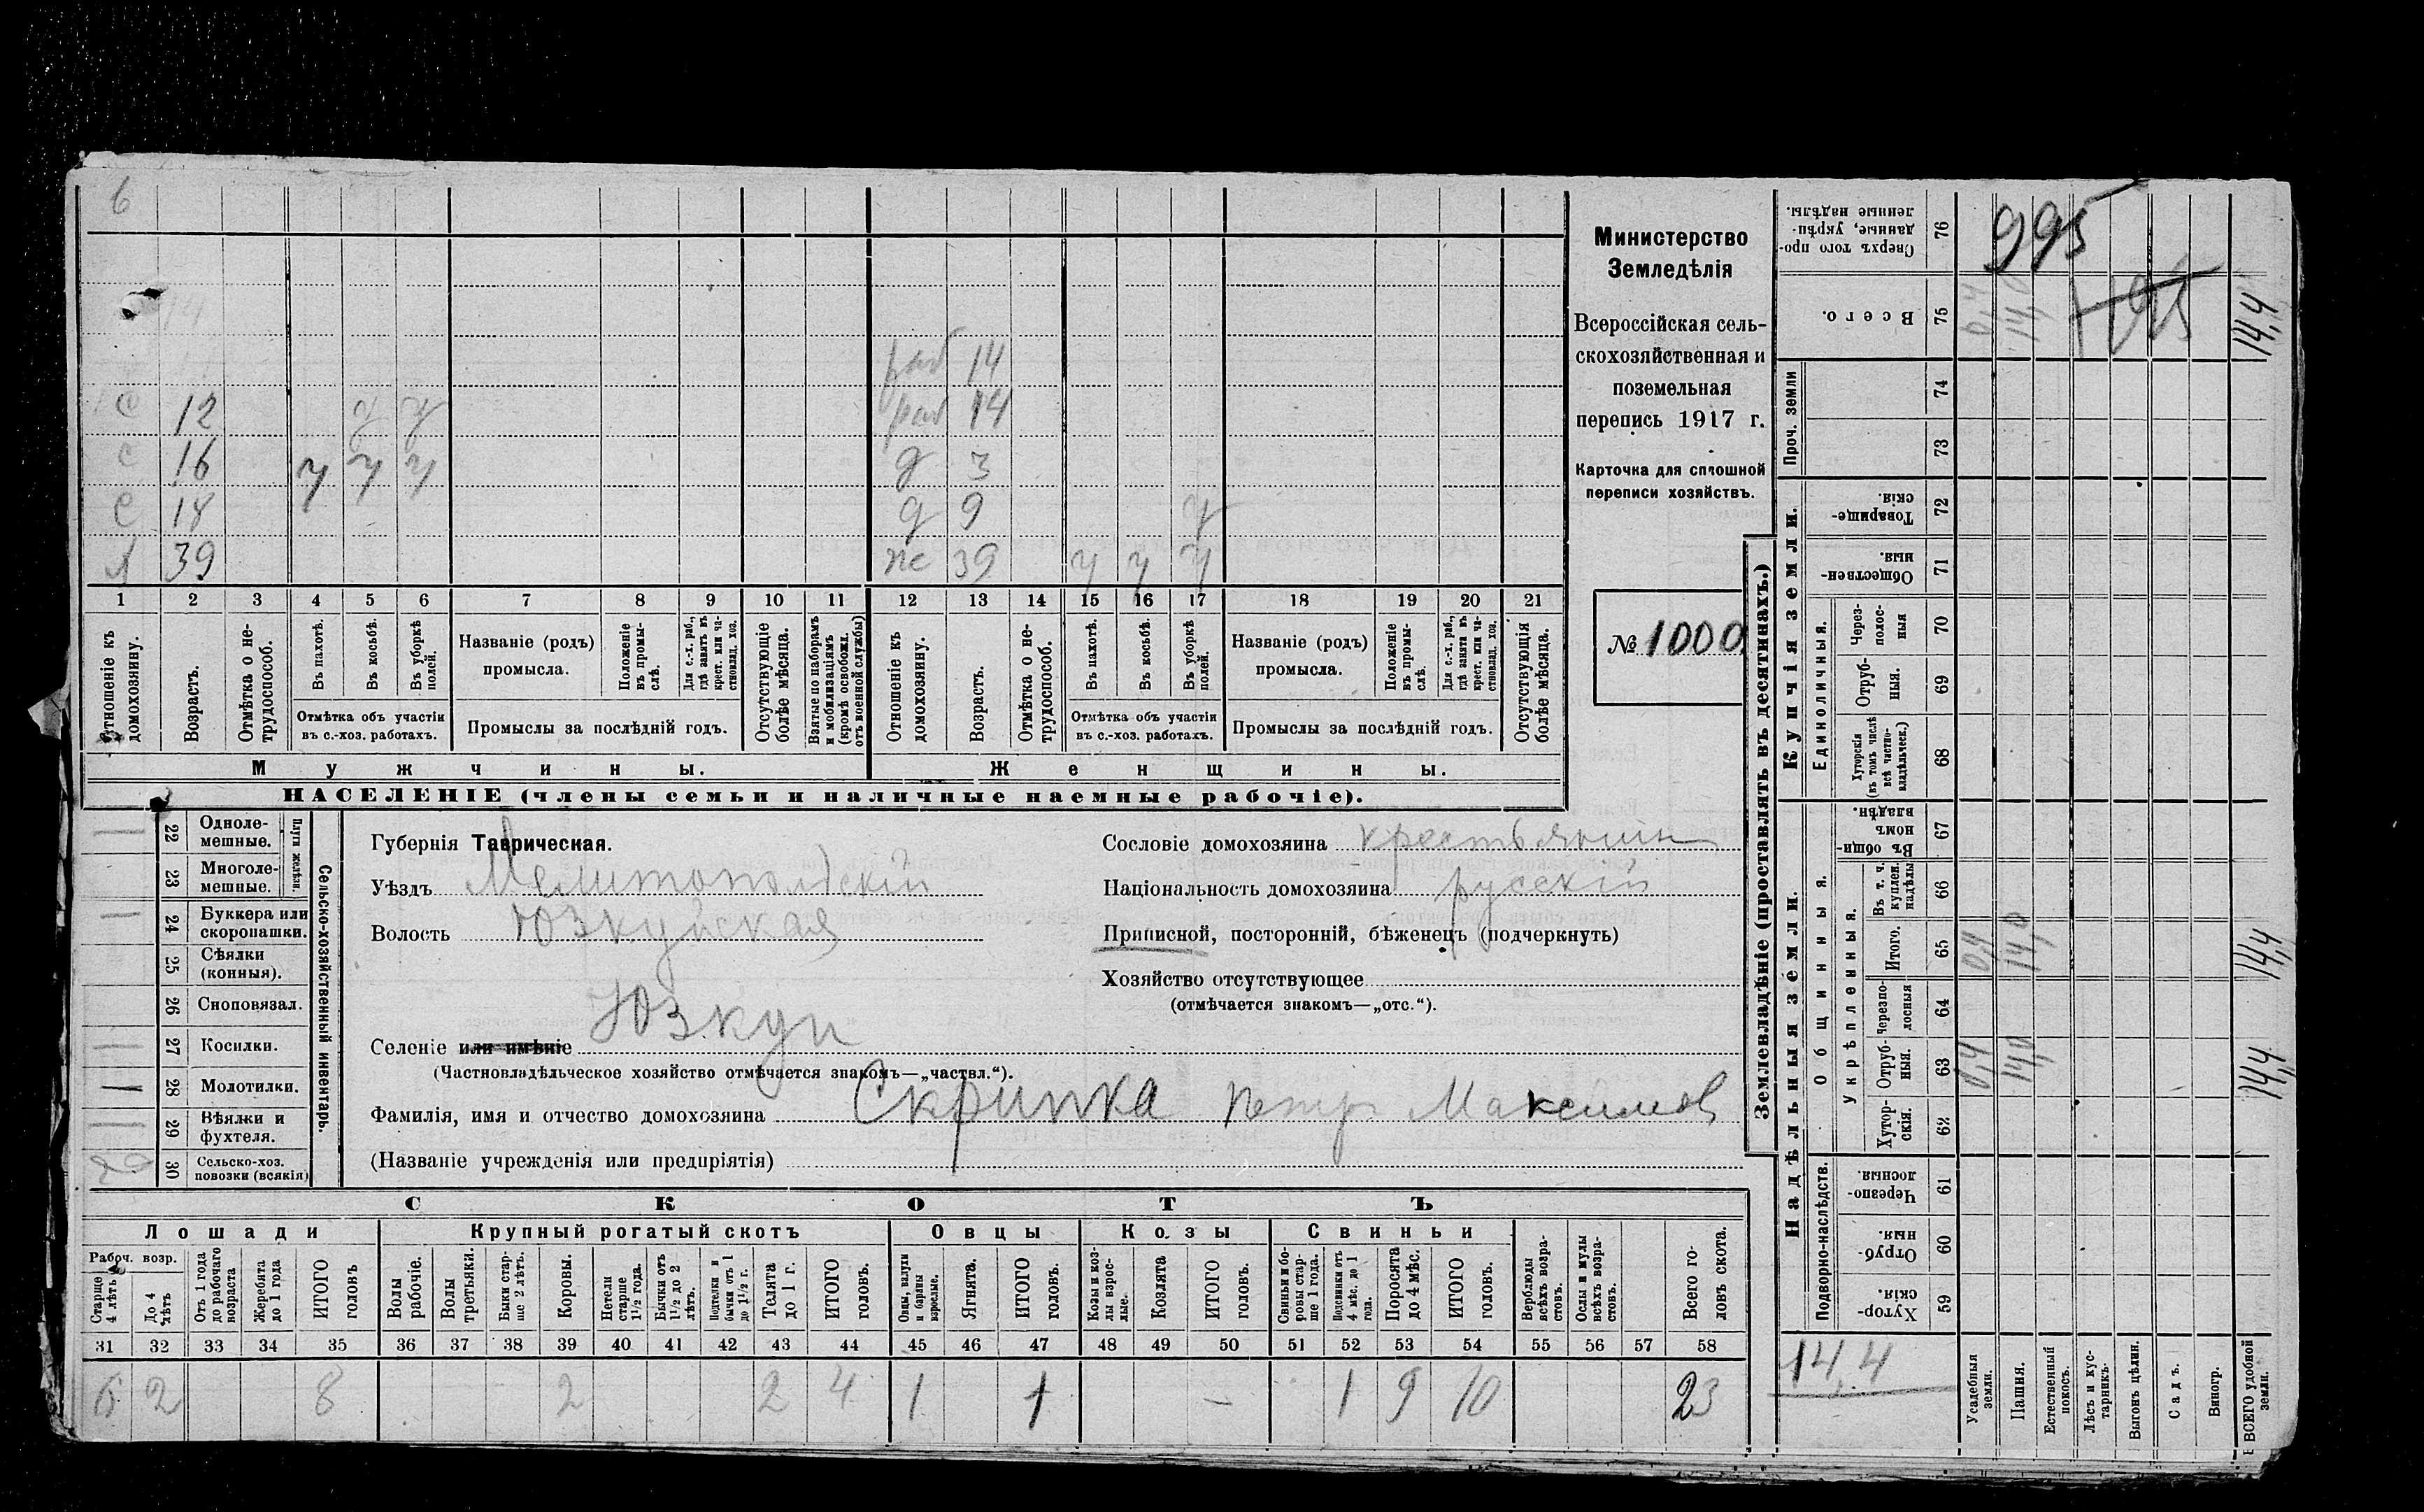 6
995
Министерство
Земледѣлія
Всероссійская сель-
скохозяйственная и
поземельная
перепись 1917 г.
Карточка для сплошной
переписи хозяйствъ.
№ 1000
раб 14
с 12 у у раб 14
с 16 у у у д 3
с 18 д 9 у
39 же 39 у у у
1 2 3 4 5 6 7 8 9 10 11 12 13 14 15 16 17 18 19 20 21
Отношеніе къ домохозяину.
Возрастъ.
Отмѣтка о не-трудоспособ.
Въ пахотѣ.
Въ косьбѣ.
Въ уборкѣ полей.
Отмѣтка объ участіи
въ с.-хоз. работахъ.
Названіе (родъ)
промысла.
Положеніе въ промы-слѣ.
Для с.-х. раб., гдѣ занятъ въ крест. или ча-стновлад. хоз.
Промыслы за послѣдній годъ.
Отсутствующіе болѣе мѣсяца.
Взятые по наборамъ и мобилизаціямъ (кромѣ освобожд. отъ военной службы)
Отношеніе къ домохозяину.
Возрастъ.
Отмѣтка о не-трудоспособ.
Въ пахотѣ.
Въ косьбѣ.
Въ уборкѣ полей.
Отмѣтка объ участіи
въ с.-хоз. работахъ.
Названіе (родъ)
промысла.
Положеніе въ промы-слѣ.
Для с.-х. раб., гдѣ занята въ крест. или ча-стновлад. хоз.
Промыслы за послѣдній годъ.
Отсутствующія болѣе мѣсяца.
Мужчины.
Женщины.
НАСЕЛЕНІЕ (члены семьи и наличные наемные рабочіе).
Сельско-хозяйственный инвентарь.
Плуги желѣзн.
22 Одноле-мешные.
23 Многоле-мешные.
24 Буккера или скоропашки.
25 Сѣялки (конныя).
26 Сноповязал.
27 Косилки.
28 Молотилки.
29 Вѣялки и фухтеля.
30 Сельско-хоз. повозки (всякія)
Губернія Таврическая.
Уѣздъ Мелитопольскій
Волость Юзкуйская
Селеніе или имѣніе Юзкуи
(Частновладѣльческое хозяйство отмѣчается знакомъ—„частвл.“).
Фамилія, имя и отчество домохозяина Скрипка Петр Максимов
(Названіе учрежденія или предпріятія)
Сословіе домохозяина крестьянин
Національность домохозяина русскій
Приписной, посторонній, бѣженецъ (подчеркнуть)
Хозяйство отсутствующее
(отмѣчается знакомъ—„отс.“).
СКОТЪ
Лошади Крупный рогатый скотъ Овцы Козы Свиньи
Рабоч. возр.
Старше 4 лѣтъ
До 4 лѣтъ
Отъ 1 года до рабочаго возраста
Жеребята до 1 года
ИТОГО головъ
Волы рабочіе.
Волы третьяки.
Быки стар-ше 2 лѣтъ.
Коровы.
Нетели старше 1½ года.
Бычки отъ 1½ до 2 лѣтъ.
Подтелки и бычки отъ 1 до 1½ г.
Телята до 1 г.
ИТОГО головъ.
Овцы, валухи и бараны взрослые.
Ягнята.
ИТОГО головъ.
Козы и коз-лы взрос-лые.
Козлята
ИТОГО головъ.
Свиньи и бо-ровы стар-ше 1 года.
Подсвинки отъ 4 мѣс. до 1 года.
Поросята до 4 мѣс.
ИТОГО головъ.
Верблюды всѣхъ возра-стовъ.
Ослы и мулы всѣхъ возра-стовъ.
Всего го-ловъ скота.
31 32 33 34 35 36 37 38 39 40 41 42 43 44 45 46 47 48 49 50 51 52 53 54 55 56 57 58
6 2 8 2 2 4 1 1 – 1 9 10 23
Землевладѣніе (проставлять въ десятинахъ.)
Надѣльныя земли.
Купчія земли.
Проч. земли
Подворно-наслѣдств.
Общинныя.
укрѣпленныя.
Единоличныя.
Хутор-скія. 59
Отруб-ныя. 60
Черезпо-лосныя 61
Хутор-скія. 62
Отруб-ныя. 63 0,4 14,0 14,4
Черезпо-лосныя 64
Итого. 65 0,4 14,0 14,4
Въ т. ч. куплен. надѣлы 66
Въ общи-номъ владѣн. 67
Хуторскія (въ томъ числѣ всѣ частно-владѣльческ.) 68
Отруб-ныя. 69
Через-полос-ныя 70
Обществен-ныя. 71
Товарище-скія. 72
73
74
Всего. 75 0,4 14,0 14,4
Сверхъ того про-данные, укрѣп-ленные надѣлы. 76
14,4
Усадебныя земли.
Пашня.
Естественный покосъ.
Лѣсъ и кус-тарникъ.
Выгонъ цѣлин.
Садъ.
Виногр.
ВСЕГО удобной земли.